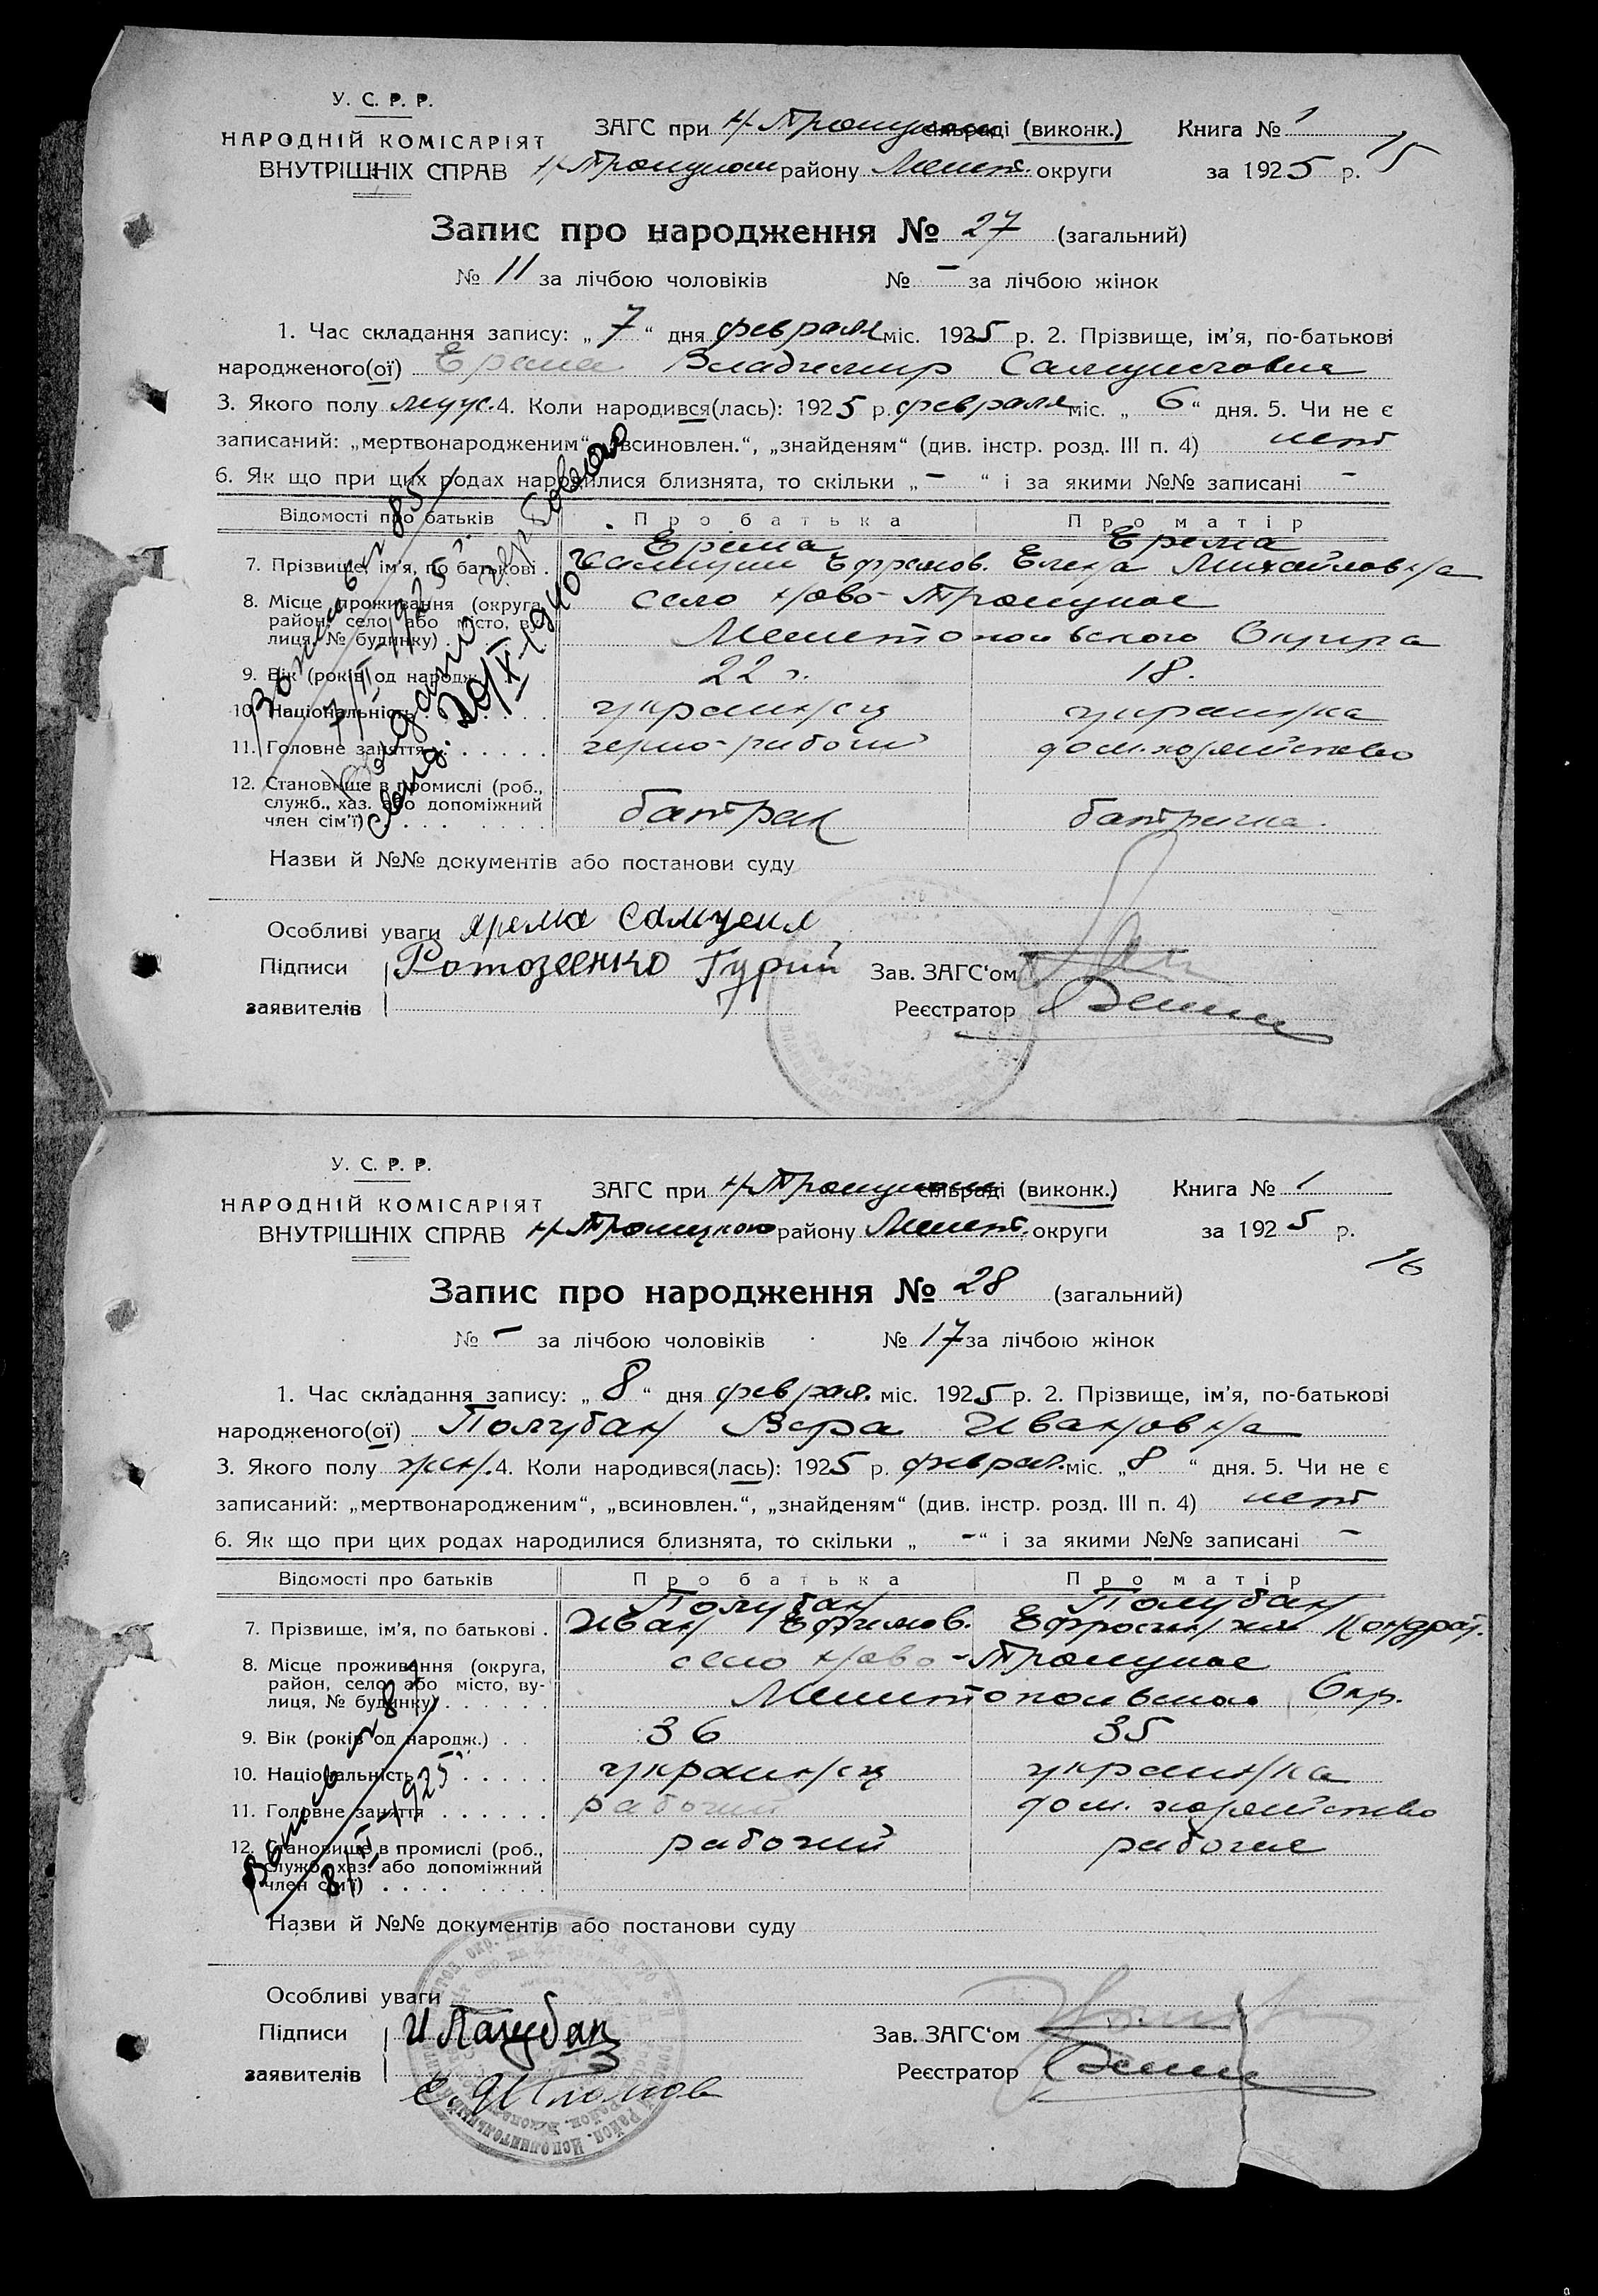 У. С. Р. Р.
НАРОДНІЙ КОМІСАРІЯТ
ВНУТРІШНІХ СПРАВ
ЗАГС при Н Троицком сільраді (виконк.) Книга № 1
Н Троицком району Мелит. округи за 1925 р.
15
Запис про народження № 27 (загальний)
№ 11 за лічбою чоловіків № - за лічбою жінок
1. Час складання запису: „ 7 “ дня февраля міс. 1925 р. 2. Прізвище, ім'я, по-батькові
народженого(ої) Ерема Владимир Самуилович
3. Якого полу муж. 4. Коли народився(лась): 1925 р. февраля міс. „ 6 “ дня. 5. Чи не є
записаний: „мертвонародженим“, „всиновлен.“, „знайденям“ (див. інстр. розд. III п. 4) нет
6. Як що при цих родах народилися близнята, то скільки „ - “ і за якими №№ записані -
Відомості про батьків Про батька Про матір
Ерема Ерема
7. Прізвище, ім'я, по батькові . Самуил Ефремов. Елена Михайловна
8. Місце проживання (округа, район, село або місто, вулиця, № будинку) село Ново-Троицкое
Мелитопольского Округа
9. Вік (років од народж.) 22 г. 18.
10. Національність украинец украинка
11. Головне заняття черно-рабочий дом. хозяйство
12. Становище в промислі (роб., служб., хаз. або допоміжний член сім'ї) батрак батрачка.
7/II-1925 г.
20/XI-1940
Назви й №№ документів або постанови суду
Особливі уваги Ярема Самуеил
Підписи Ротозеенко Гурий Зав. ЗАГС'ом
заявителів Реєстратор
У. С. Р. Р.
НАРОДНІЙ КОМІСАРІЯТ
ВНУТРІШНІХ СПРАВ
ЗАГС при Н Троицком сільраді (виконк.) Книга № 1
Н Троицкого району Мелит. округи за 1925 р.
16
Запис про народження № 28 (загальний)
№ - за лічбою чоловіків № 17 за лічбою жінок
1. Час складання запису: „ 8 “ дня феврал. міс. 1925 р. 2. Прізвище, ім'я, по-батькові
народженого(ої) Полубан Вера Ивановна
3. Якого полу жен. 4. Коли народився(лась): 1925 р. феврал. міс. „ 8 “ дня. 5. Чи не є
записаний: „мертвонародженим“, „всиновлен.“, „знайденям“ (див. інстр. розд. III п. 4) нет
6. Як що при цих родах народилися близнята, то скільки „ - “ і за якими №№ записані -
Відомості про батьків Про батька Про матір
Полубан Полубан
7. Прізвище, ім'я, по батькові . Иван Ефимов. Ефросиния Кондрат.
8. Місце проживання (округа, район, село або місто, вулиця, № будинку) село Ново-Троицкое
Мелитопольского Окр.
9. Вік (років од народж.) 36 35
10. Національність украинец украинка
11. Головне заняття рабочий дом. хозяйство
12. Становище в промислі (роб., служб., хаз. або допоміжний член сім'ї) рабочий рабочая
8/II-1925 г.
Назви й №№ документів або постанови суду
Особливі уваги
Підписи И Палубан Зав. ЗАГС'ом
заявителів Реєстратор